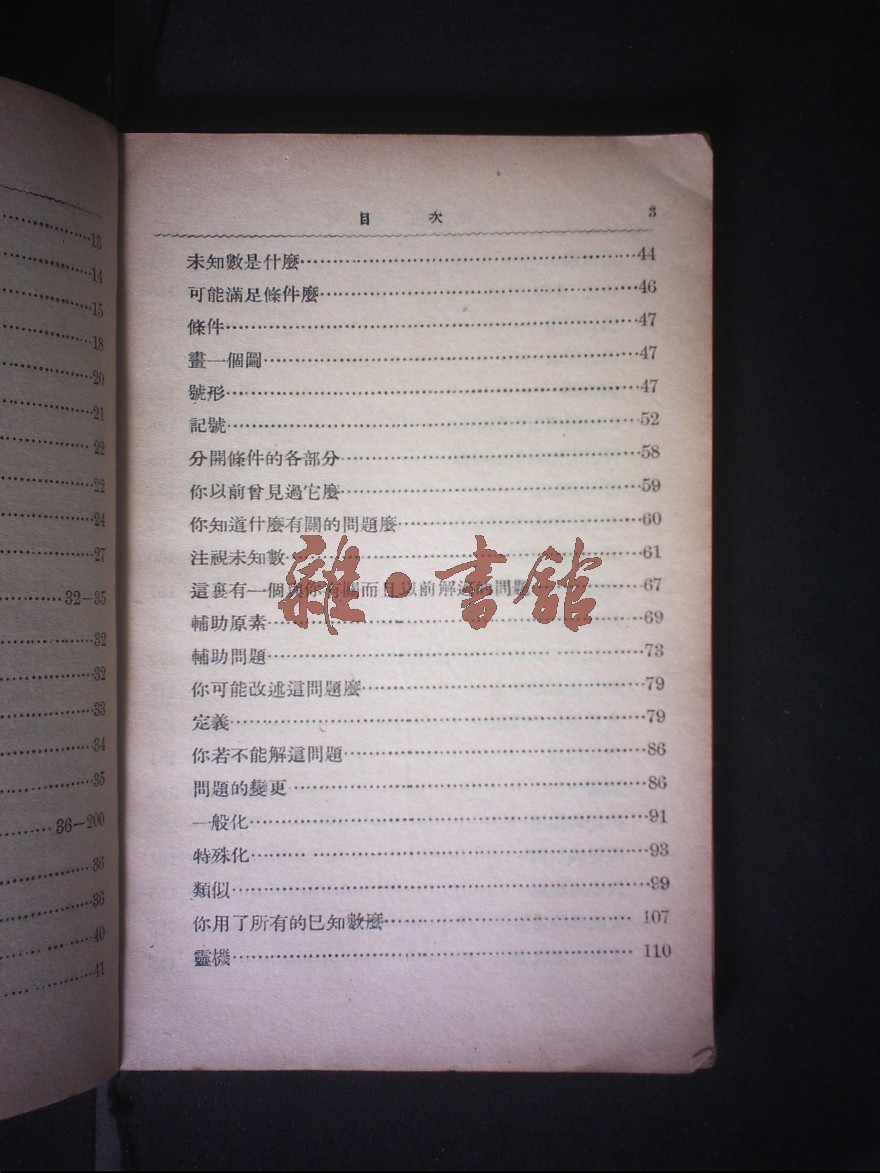 13
14
15
18
20
21
22
22
24
27
32—35
32
32
33
34
35
36—200
36
36
40
41
目 次 3
未知數是什麼……44
可能滿足條件麼……46
條件……47
畫一個圖……47
號形……47
記號……52
分開條件的各部分……58
你以前曾見過它麼……59
你知道什麼有關的問題麼……60
注視未知數……61
這裏有一個與你有關而且以前解過的問題……67
輔助原素……69
輔助問題……73
你可能改述這問題麼……79
定義……79
你若不能解這問題……86
問題的變更……86
一般化……91
特殊化……93
類似……99
你用了所有的已知數麼……107
靈機……110
雜·書館